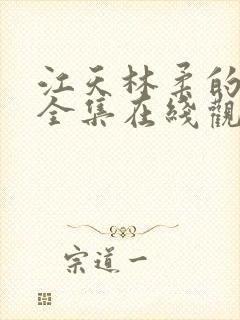 江天林柔的
全集在綫觀
宗道一